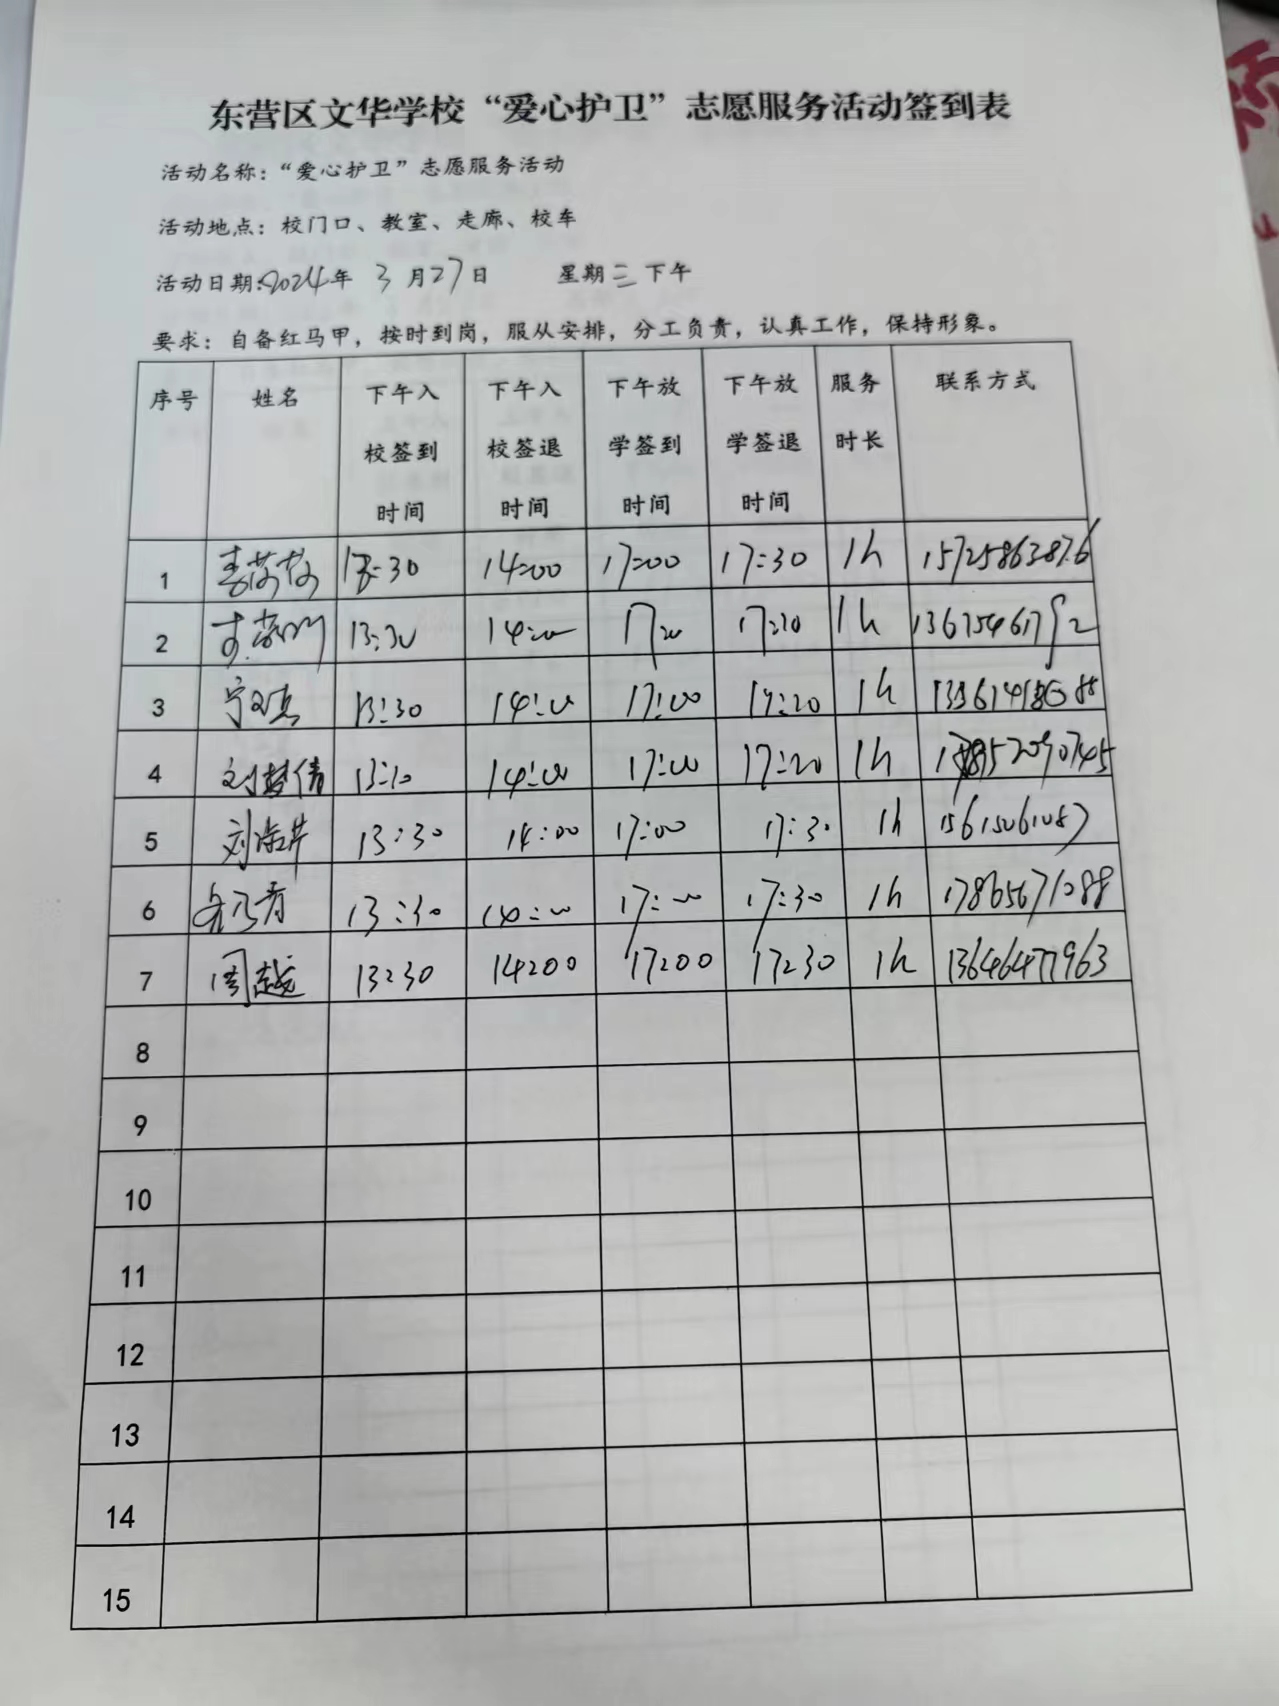 东营区文华学校“爱心护卫”志愿服务活动签到表
活动名称：“爱心护卫”志愿服务活动
活动地点：校门口、教室、走廊、校车
活动日期:2024年 3月27日 星期三下午
要求：自备红马甲，按时到岗，服从安排，分工负责，认真工作，保持形象。
序号 姓名 下午入校签到时间 下午入校签退时间 下午放学签到时间 下午放学签退时间 服务时长 联系方式
1 13:30 14:00 17:00 17:30 1h 15725863876
2 13:30 14:00 1h
3 13:30 14:00 17:00 17:20 1h
4 刘梦倩 14:00 17:00 17:20 1h
5 13:30 14:00 17:00 17:30 1h 15615061087
6 13:30 14:00 17:00 17:30 1h 17865671088
7 周越 13:30 14:00 17:00 17:30 1h 13646477963
8
9
10
11
12
13
14
15